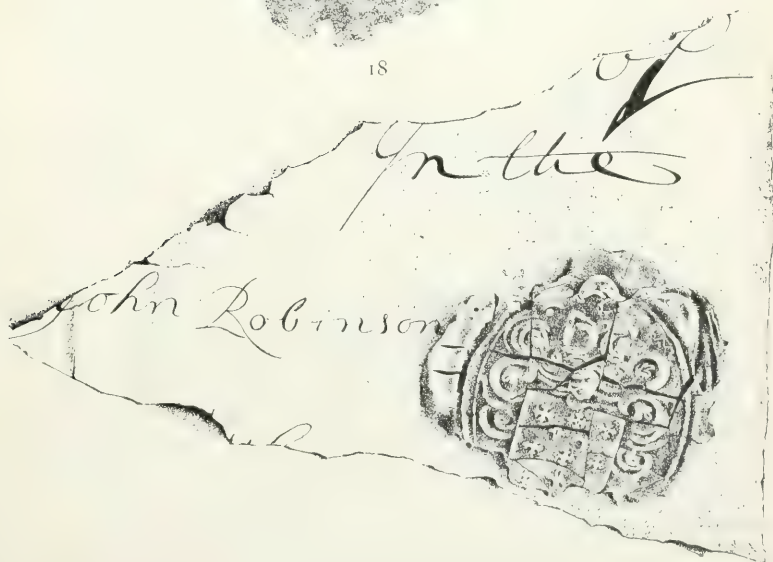 18
of
In the
John Robinson